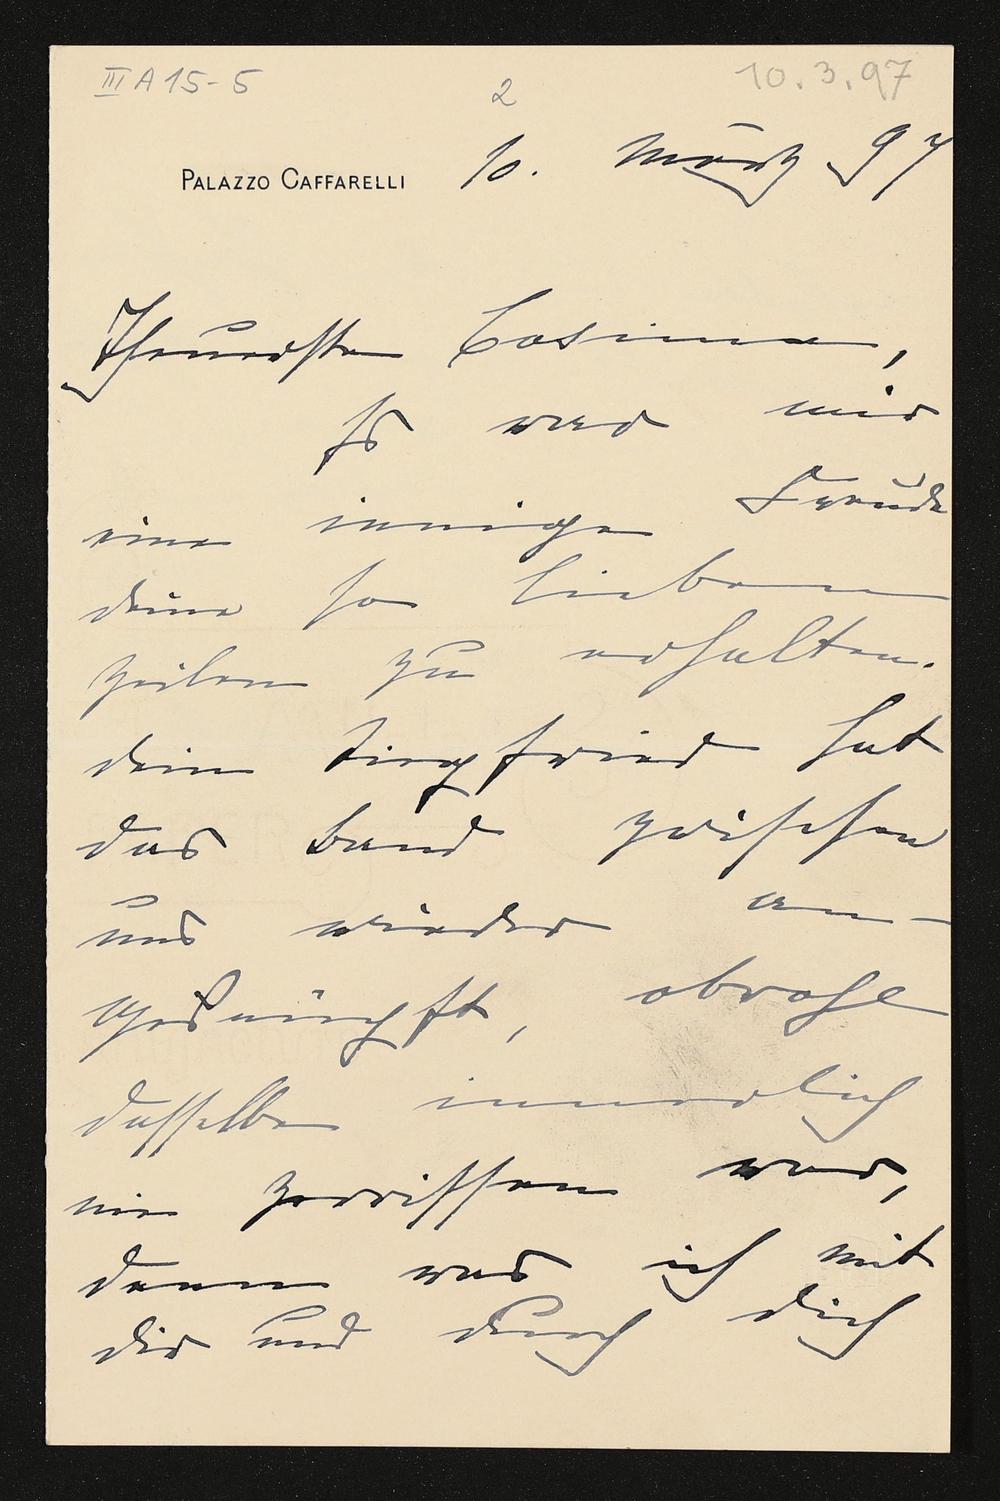 III A 15-5
2
10.3.97
PALAZZO CAFFARELLI
10. März 97
Theuerste Cosima,
Es war mir
eine innige Freude
deine so lieben
Zeilen zu erhalten.
dein Siegfried hat
das Band zwischen
uns wieder an-
geknüpft, obwohl
dasselbe innerlich
nie zerrissen war,
denn was ich mit
dir und durch dich